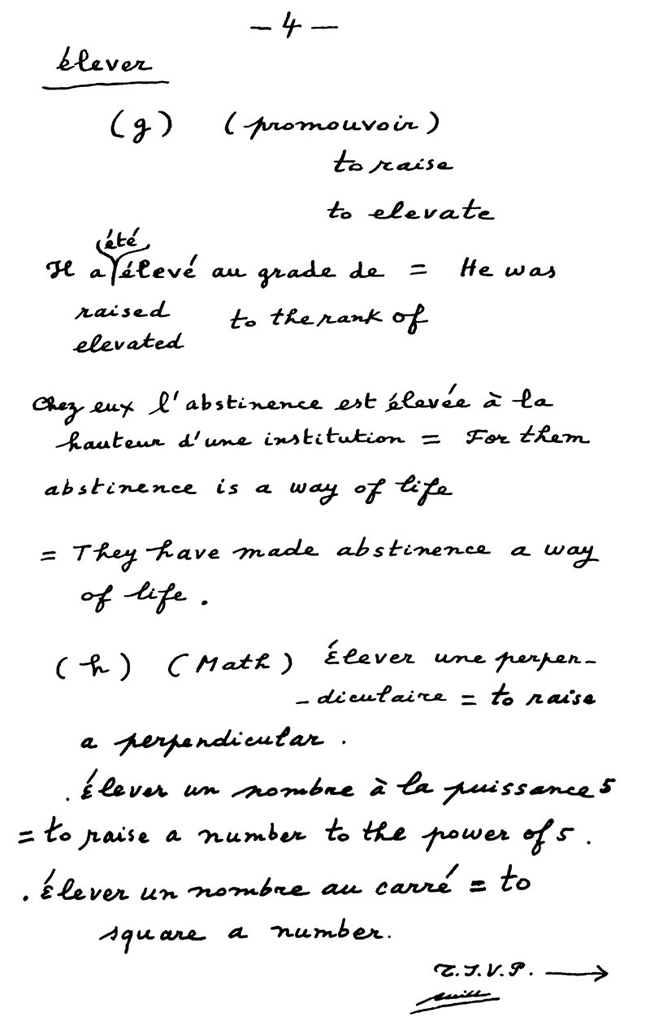 — 4 —
élever
(g) (promouvoir)
to raise
to elevate
été
Il a élevé au grade de = He was
raised to the rank of
elevated
Chez eux l'abstinence est élevée à la
hauteur d'une institution = For them
abstinence is a way of life
= They have made abstinence a way
of life.
(h) (Math) Élever une perpen-
- diculaire = to raise
a perpendicular.
. Élever un nombre à la puissance 5
= to raise a number to the power of 5.
. Élever un nombre au carré = to
square a number.
T.S.V.P. →
suite